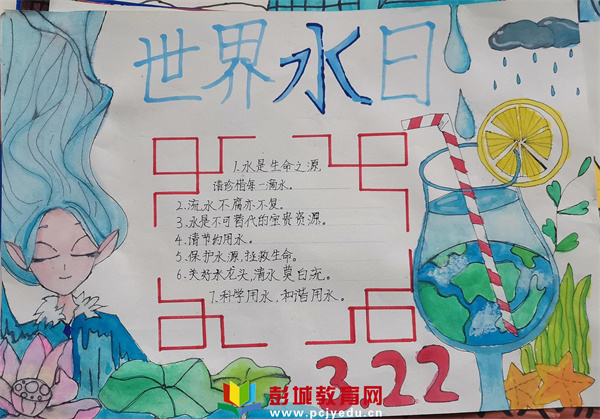 世界水日
1.水是生命之源
请珍惜每一滴水。
2.流水不腐亦不复。
3.水是不可替代的宝贵资源。
4.请节约用水。
5.保护水源,拯救生命。
6.关好水龙头,清水莫白流。
7.科学用水,和谐用水。
3.22
彭城教育网
www.pcjyedu.cn